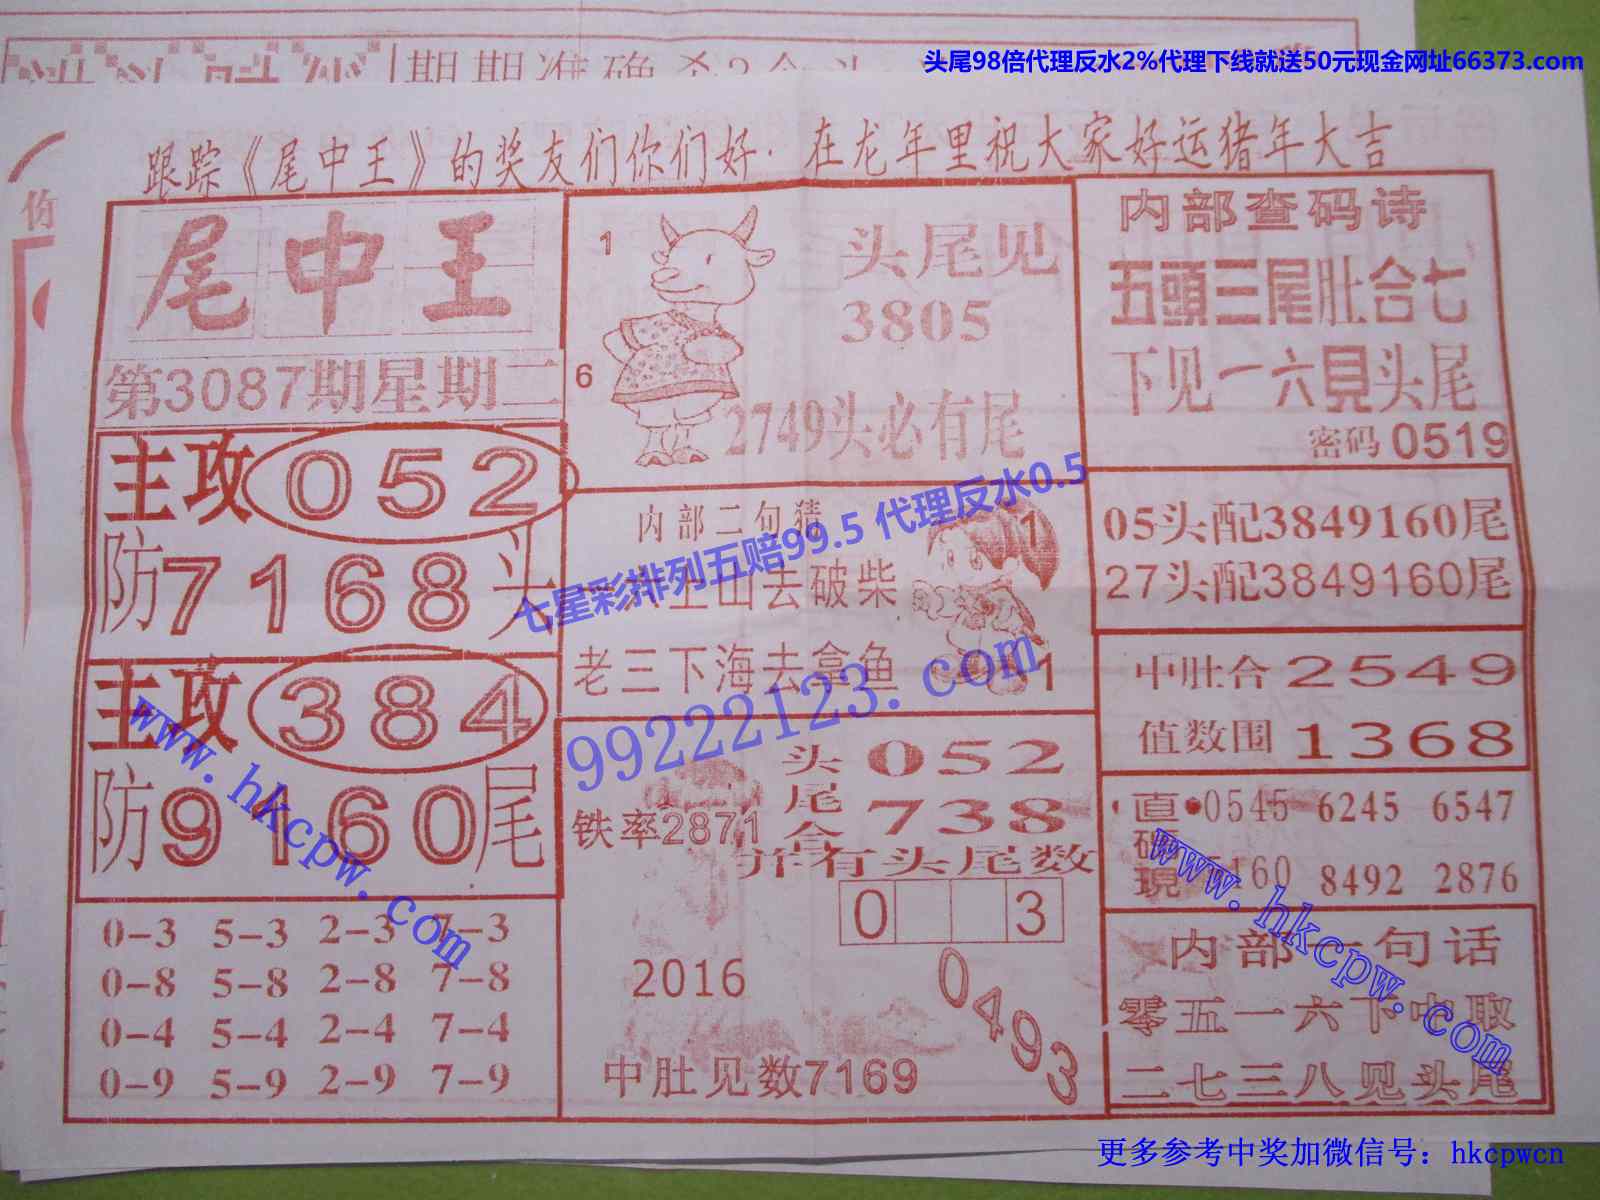 头尾98倍代理反水2%代理下线就送50元现金网址66373.com
期期准确杀2个头
跟踪《尾中王》的奖友们你们好·在龙年里祝大家好运猪年大吉
尾中王
第3087期星期二
主攻052
防7168头
主攻384
防9160尾
0-3 5-3 2-3 7-3
0-8 5-8 2-8 7-8
0-4 5-4 2-4 7-4
0-9 5-9 2-9 7-9
1
6
头尾见
3805
2749头必有尾
内部二句猜
上山去破柴
老三下海去拿鱼
1
1
铁率2871
头052
尾738
合
并有头尾数
0 3
2016
0493
中肚见数7169
内部查码诗
五頭三尾肚合七
下见一六見头尾
密码0519
05头配3849160尾
27头配3849160尾
中肚合2549
值数围1368
直碼現
0545 6245 6547
160 8492 2876
内部一句话
零五一六下中取
二七三八见头尾
七星彩排列五赔99.5 代理反水0.5
99222123.com
www.hkcpw.com
www.hkcpw.com
更多参考中奖加微信号：hkcpwcn